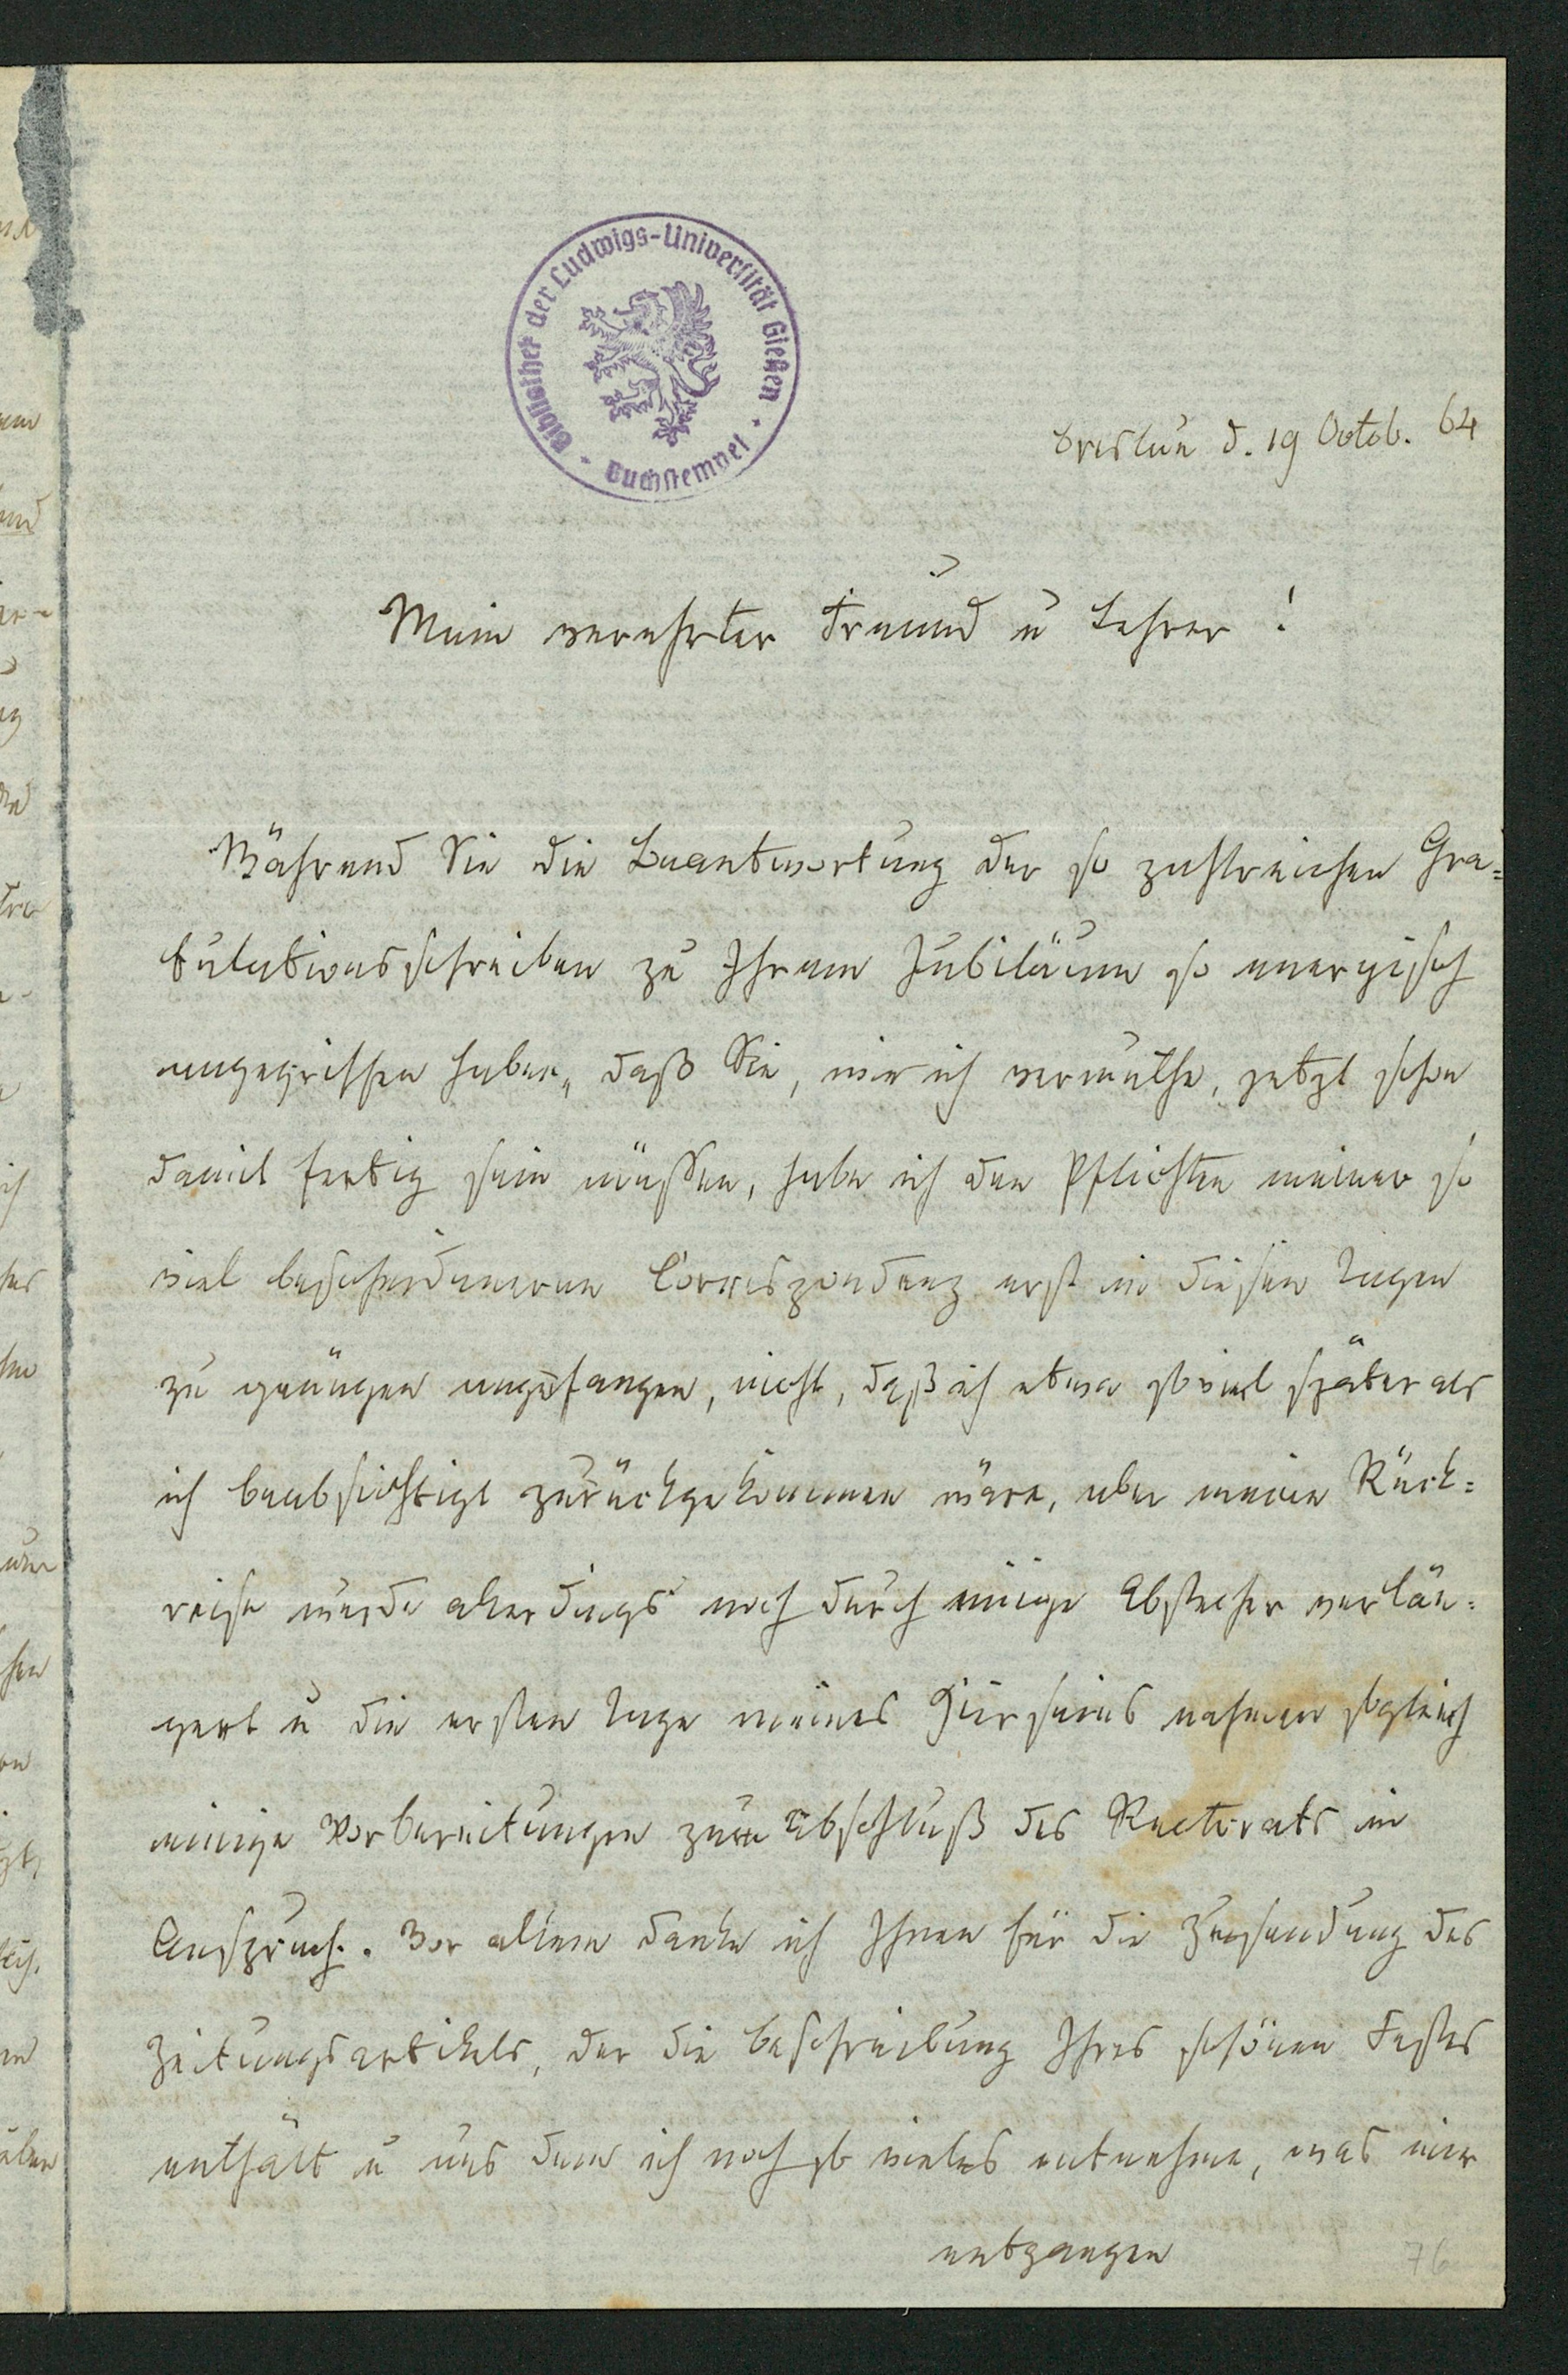 Bibliothek der Ludwigs-Universität Gießen
Buchstempel
Breslau d. 19 Octob. 64
Mein verehrter Freund u Lehrer!
Während Sie die Beantwortung der so zahlreichen Gra=
tulationsschreiben zu Ihrem Jubiläum so energisch
angegriffen haben, daß Sie, wie ich vermuthe, jetzt schon
damit fertig sein müssen, habe ich den Pflichten meiner so
viel bescheideneren Correspondenz erst in diesen Tagen
zu genügen angefangen, nicht, daß ich etwa so viel später als
ich beabsichtigt zurückgekommen wäre, aber meine Rück=
reise wurde allerdings noch durch einige Abstecher verlän=
gert u die ersten Tage meines Hierseins nahmen sogleich
einige Vorbereitungen zum Abschluß des Rectorats in
Anspruch. Vor allem danke ich Ihnen für die Zusendung des
Zeitungsartikels, der die Beschreibung Ihres schönen Festes
enthält u aus dem ich noch so vieles entnehme, was mir
entgangen
76